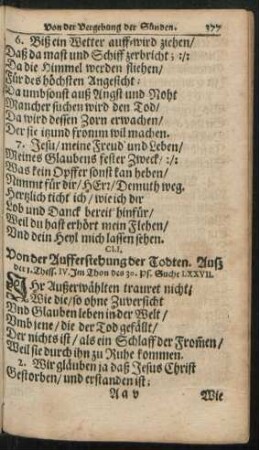 Von der Vergebung der Sünden. 377
6. Biß ein Wetter auff-wird ziehen/
Daß da mast und Schiff zerbricht; :/:
Da die Himmel werden fliehen/
Für des höchsten Angesicht:
Da umsonst auß Angst und Noht
Mancher suchen wird den Tod/
Da wird dessen Zorn erwachen/
Der sie itzund fromm wil machen.
7. Jesu/ meine Freud und Leben/
Meines Glaubens fester Zweck/ :/:
Was kein Opffer sonst kan heben/
Nimmt für dir/ HErr/ Demuth weg.
Hertzlich ticht ich/ wie ich dir
Lob und Danck bereit hinfür/
Weil du hast erhört mein Flehen/
Und dein Heyl mich lassen sehen.
CLI.
Von der Aufferstehung der Todten. Auß
der 1. Thess. IV. Im Thon des 30. Ps. Sucht LXXVII.
IHr Außerwählten trauret nicht/
Wie die/ so ohne Zuversicht
Und Glauben leben in der Welt/
Umb jene/ die der Tod gefällt/
Der nichts ist/ als ein Schlaff der From̃en/
Weil sie durch ihn zu Ruhe kommen.
2. Wir gläuben ja daß Jesus Christ
Gestorben/ und erstanden ist:
A a v Wie